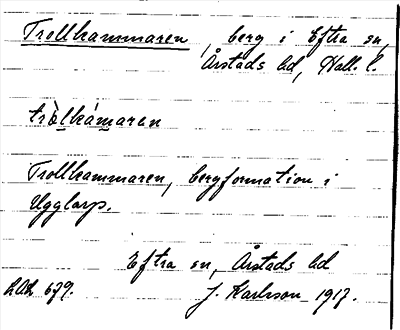 Trollhammaren, berg i Eftra sn,
Årstads hd, Hall. l.
tròlhámaren
Trollhammaren, bergformation i
Ugglarp.
Eftra sn, Årstads hd
LAL 679. J. Karlsson 1917.